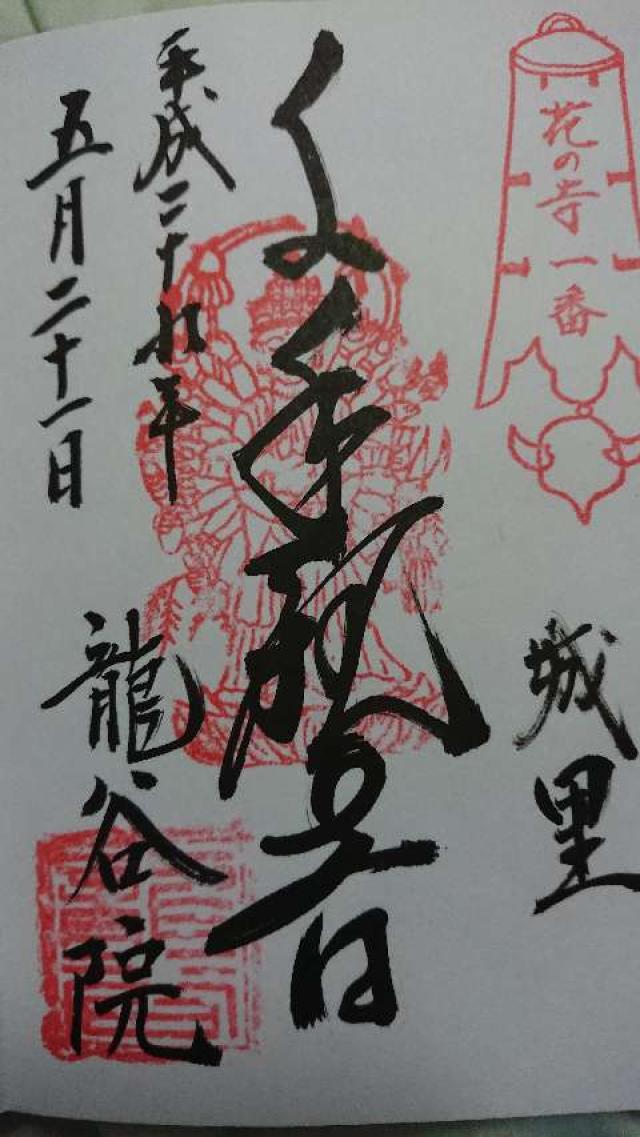 花の寺
一番
城里
千手観音
平成二十九年
五月二十一日
龍谷院